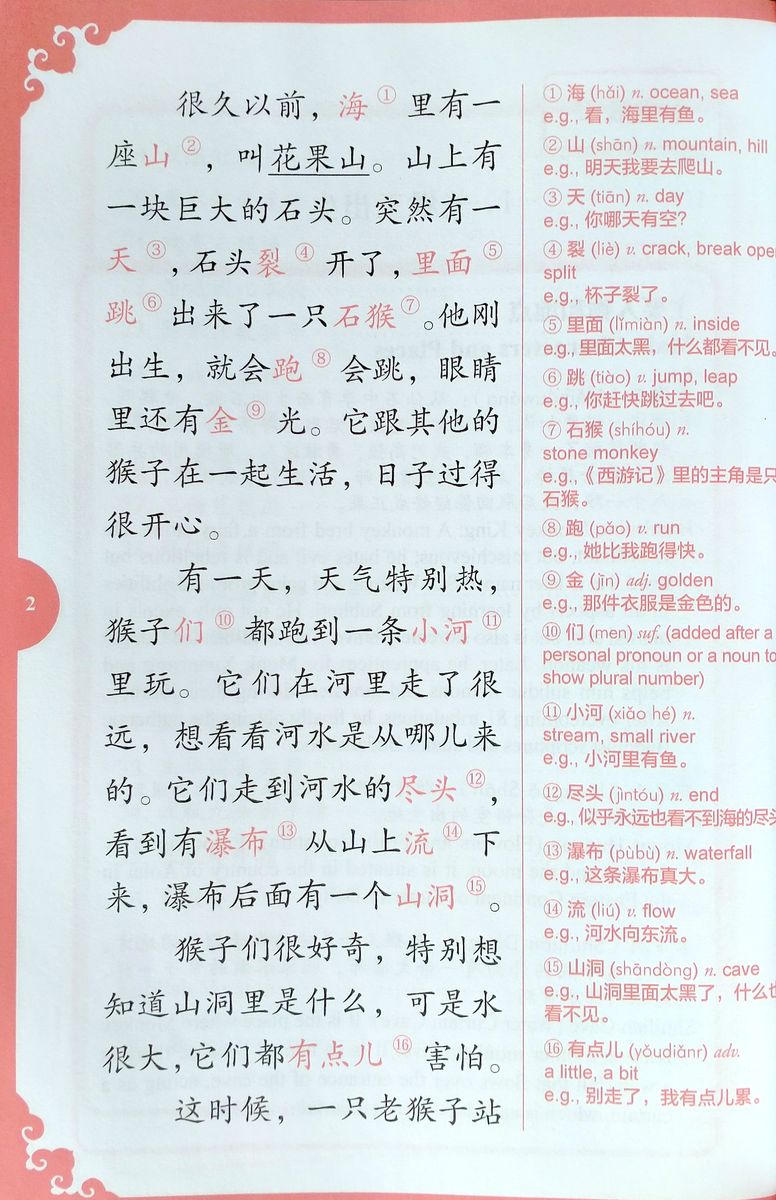 很久以前，海① 里有一
座山②，叫花果山。山上有
一块巨大的石头。突然有一
天③，石头裂④ 开了，里面⑤
跳⑥ 出来了一只石猴⑦。他刚
出生，就会跑⑧ 会跳，眼睛
里还有金⑨ 光。它跟其他的
猴子在一起生活，日子过得
很开心。
有一天，天气特别热，
猴子们⑩ 都跑到一条小河⑪
里玩。它们在河里走了很
远，想看看河水是从哪儿来
的。它们走到河水的尽头⑫，
看到有瀑布⑬ 从山上流⑭ 下
来，瀑布后面有一个山洞⑮。
猴子们很好奇，特别想
知道山洞里是什么，可是水
很大，它们都有点儿⑯ 害怕。
这时候，一只老猴子站
① 海 (hǎi) n. ocean, sea
e.g., 看，海里有鱼。
② 山 (shān) n. mountain, hill
e.g., 明天我要去爬山。
③ 天 (tiān) n. day
e.g., 你哪天有空？
④ 裂 (liè) v. crack, break open
split
e.g., 杯子裂了。
⑤ 里面 (lǐmiàn) n. inside
e.g., 里面太黑，什么都看不见。
⑥ 跳 (tiào) v. jump, leap
e.g., 你赶快跳过去吧。
⑦ 石猴 (shíhóu) n.
stone monkey
e.g.,《西游记》里的主角是只
石猴。
⑧ 跑 (pǎo) v. run
e.g., 她比我跑得快。
⑨ 金 (jīn) adj. golden
e.g., 那件衣服是金色的。
⑩ 们 (men) suf. (added after a
personal pronoun or a noun to
show plural number)
⑪ 小河 (xiǎo hé) n.
stream, small river
e.g., 小河里有鱼。
⑫ 尽头 (jìntóu) n. end
e.g., 似乎永远也看不到海的尽头
⑬ 瀑布 (pùbù) n. waterfall
e.g., 这条瀑布真大。
⑭ 流 (liú) v. flow
e.g., 河水向东流。
⑮ 山洞 (shāndòng) n. cave
e.g., 山洞里面太黑了，什么也
看不见。
⑯ 有点儿 (yǒudiǎnr) adv.
a little, a bit
e.g., 别走了，我有点儿累。
2